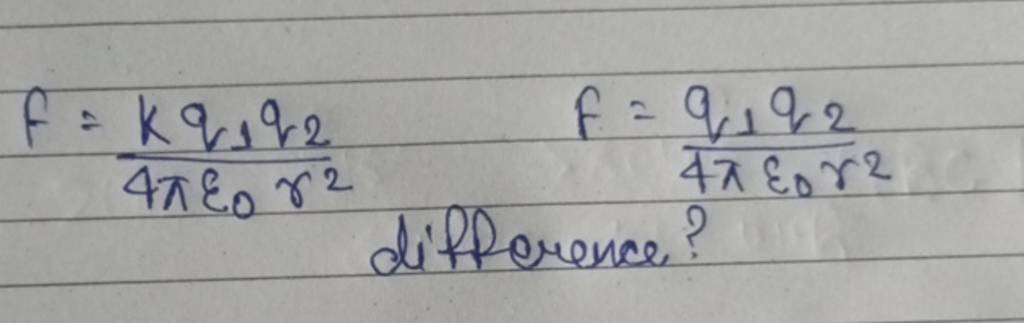 F = K q1 q2 / 4π ε0 r2    F = q1 q2 / 4π ε0 r2
difference?